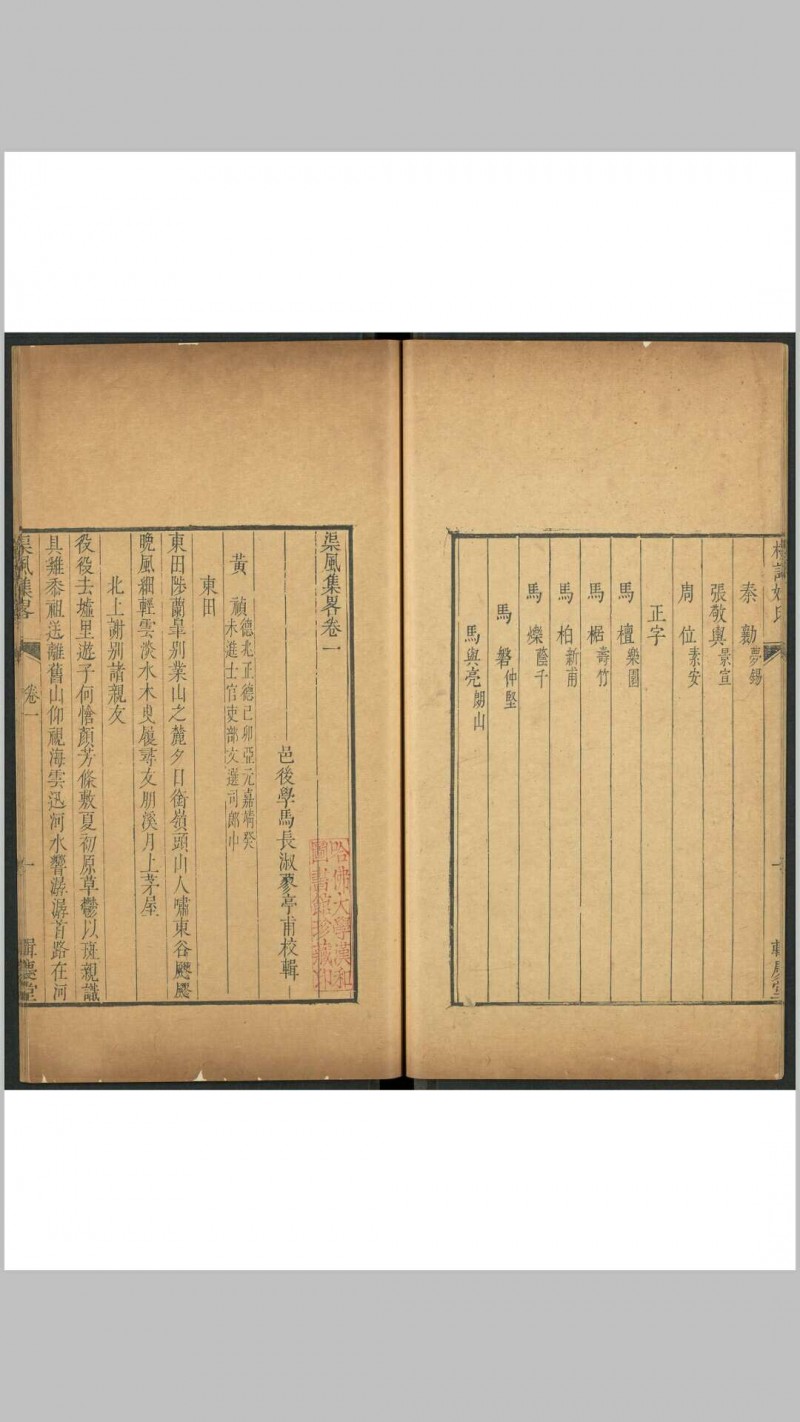 校訂姓氏
秦勷夢錫
張敬輿景宣
周位素安
正字
馬檀樂園
馬椐壽竹
馬柏新甫
馬爍蔭千
馬磐仲堅
馬與亮閬山
一
渠風集畧卷一
邑後學馬長淑蓼亭甫校輯
黃禎德兆正德己卯亞元嘉靖癸
未進士官吏部文選司郎中
東田
東田陟蘭皐別業山之麓夕日銜嶺頭山人嘯東谷颸颸
晚風細輕雲淡水木曳屐尋友朋溪月上茅屋
北上謝別諸親友
役役去墟里遊子何愴顏芳條敷夏初原草鬱以斑親識
具雞黍祖送離舊山仰視海雲迅河水響潺潺首路在河
渠風集畧
卷一
一
輯慶堂
哈佛大學漢和
圖書館珍藏印